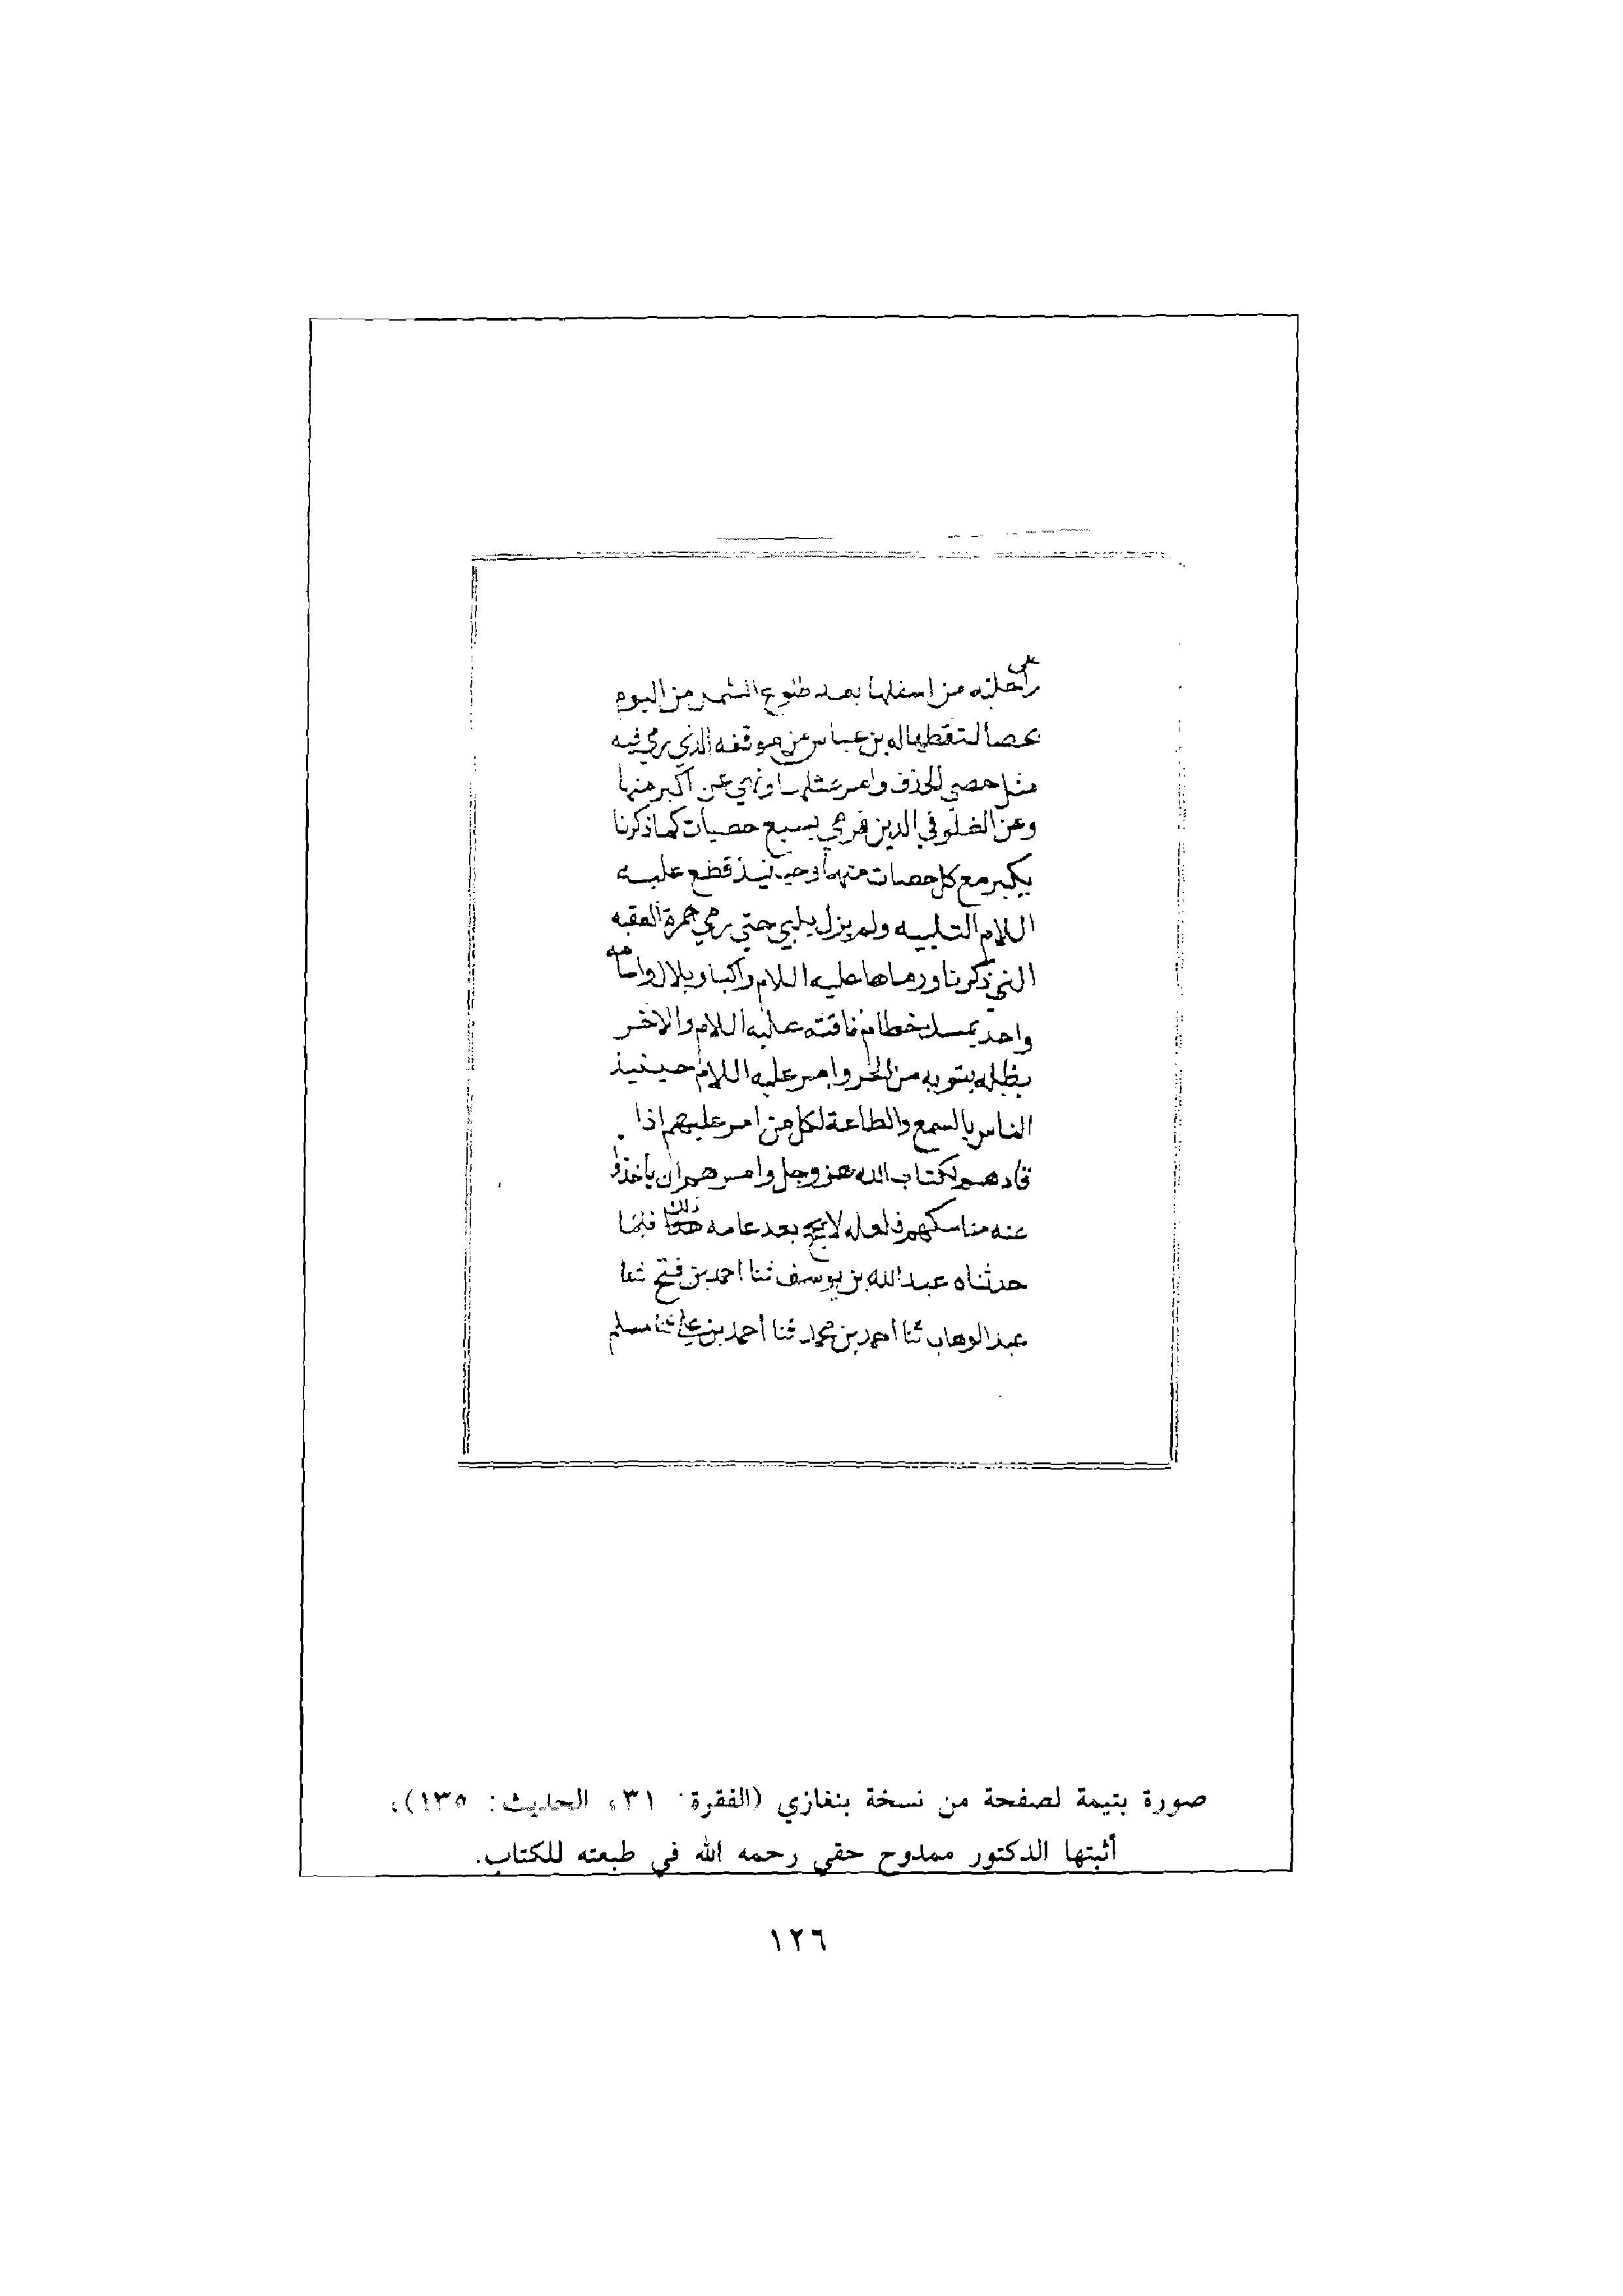 على
راحلته من اسفلها بعد طلوع الشمس من اليوم
بحصا التقطها له بن عباس من موقفه الذي رمي فيه
مثل حصي الخذف وامر بمثلها ونهي عن اكبر منها
وعن الغلو في الدين فرمي بسبع حصيات كما ذكرنا
يكبر مع كل حصات منها وحينيذ قطع عليه
اللام التلبيه ولم يزل يلبي حتي رمي جمرة العقبه
التي ذكرنا ورماها عليه اللام راكبا وبلال واسامه
واحد يمسك بخطام ناقته عليه اللام والاخر
يظله بثوبه من الحر وامر عليه اللام حينيذ
الناس بالسمع والطاعة لكل من امر عليهم اذا
قادهم بكتاب الله عز وجل وامرهم ان ياخذوا
عنه مناسكهم فلعله لا يحج بعد عامه ذلك فلما
حدثناه عبد الله بن يوسف ثنا احمد بن فتح ثنا
عبد الوهاب ثنا احمد بن محمد ثنا احمد بن علي ثنا مسلم
صورة يتيمة لصفحة من نسخة بنغازي (الفقرة: ٣١، الحديث: ١٣٥)،
أثبتها الدكتور ممدوح حقي رحمه الله في طبعته للكتاب.
١٢٦